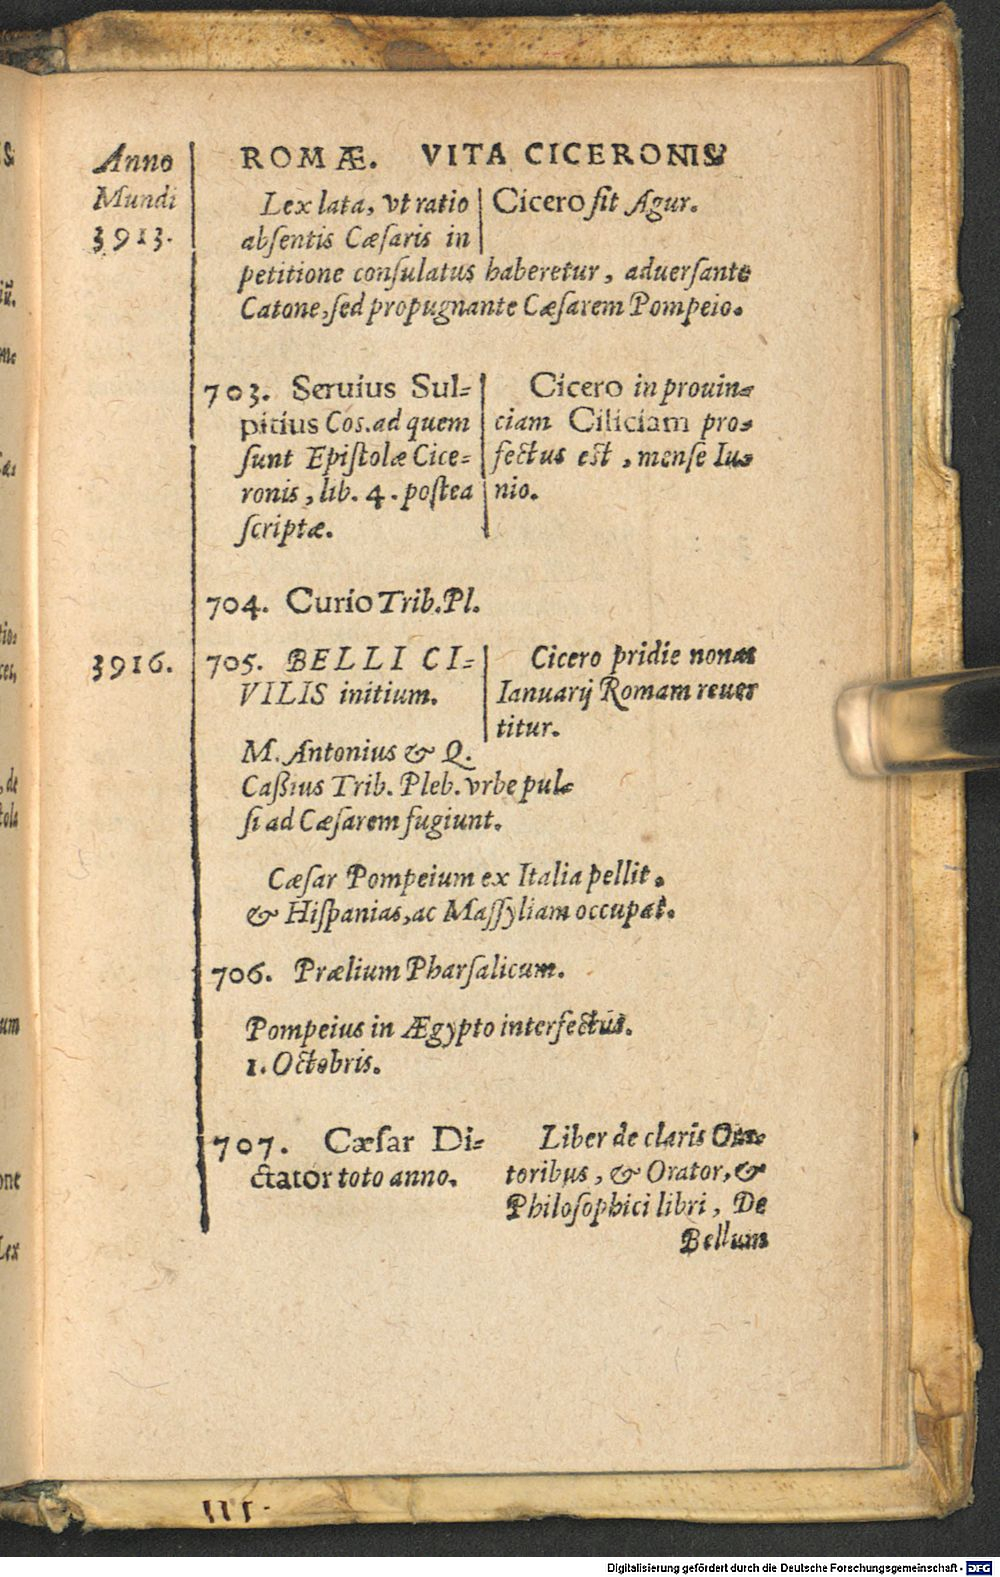 Anno
Mundi
3913.
ROMÆ. VITA CICERONIS
Lex lata, vt ratio
absentis Cæsaris in
petitione consulatus haberetur, aduersante
Catone, sed propugnante Cæsarem Pompeio.
Cicero fit Agur.
703. Seruius Sul-
pitius Cos. ad quem
sunt Epistolæ Cice-
ronis, lib. 4. postea
scriptæ.
Cicero in prouin-
ciam Ciliciam pro-
fectus est, mense Iu-
nio.
704. Curio Trib. Pl.
3916.
705. BELLI CI-
VILIS initium.
Cicero pridie nonas
Ianuarij Romam reuer
titur.
M. Antonius & Q.
Caßius Trib. Pleb. vrbe pul-
si ad Cæsarem fugiunt.
Cæsar Pompeium ex Italia pellit.
& Hispanias, ac Massyliam occupat.
706. Prælium Pharsalicum.
Pompeius in Ægypto interfectus.
1. Octobris.
707. Cæsar Di-
ctator toto anno.
Liber de claris Ora-
toribus, & Orator, &
Philosophici libri, De
Bellum
Digitalisierung gefördert durch die Deutsche Forschungsgemeinschaft - DFG